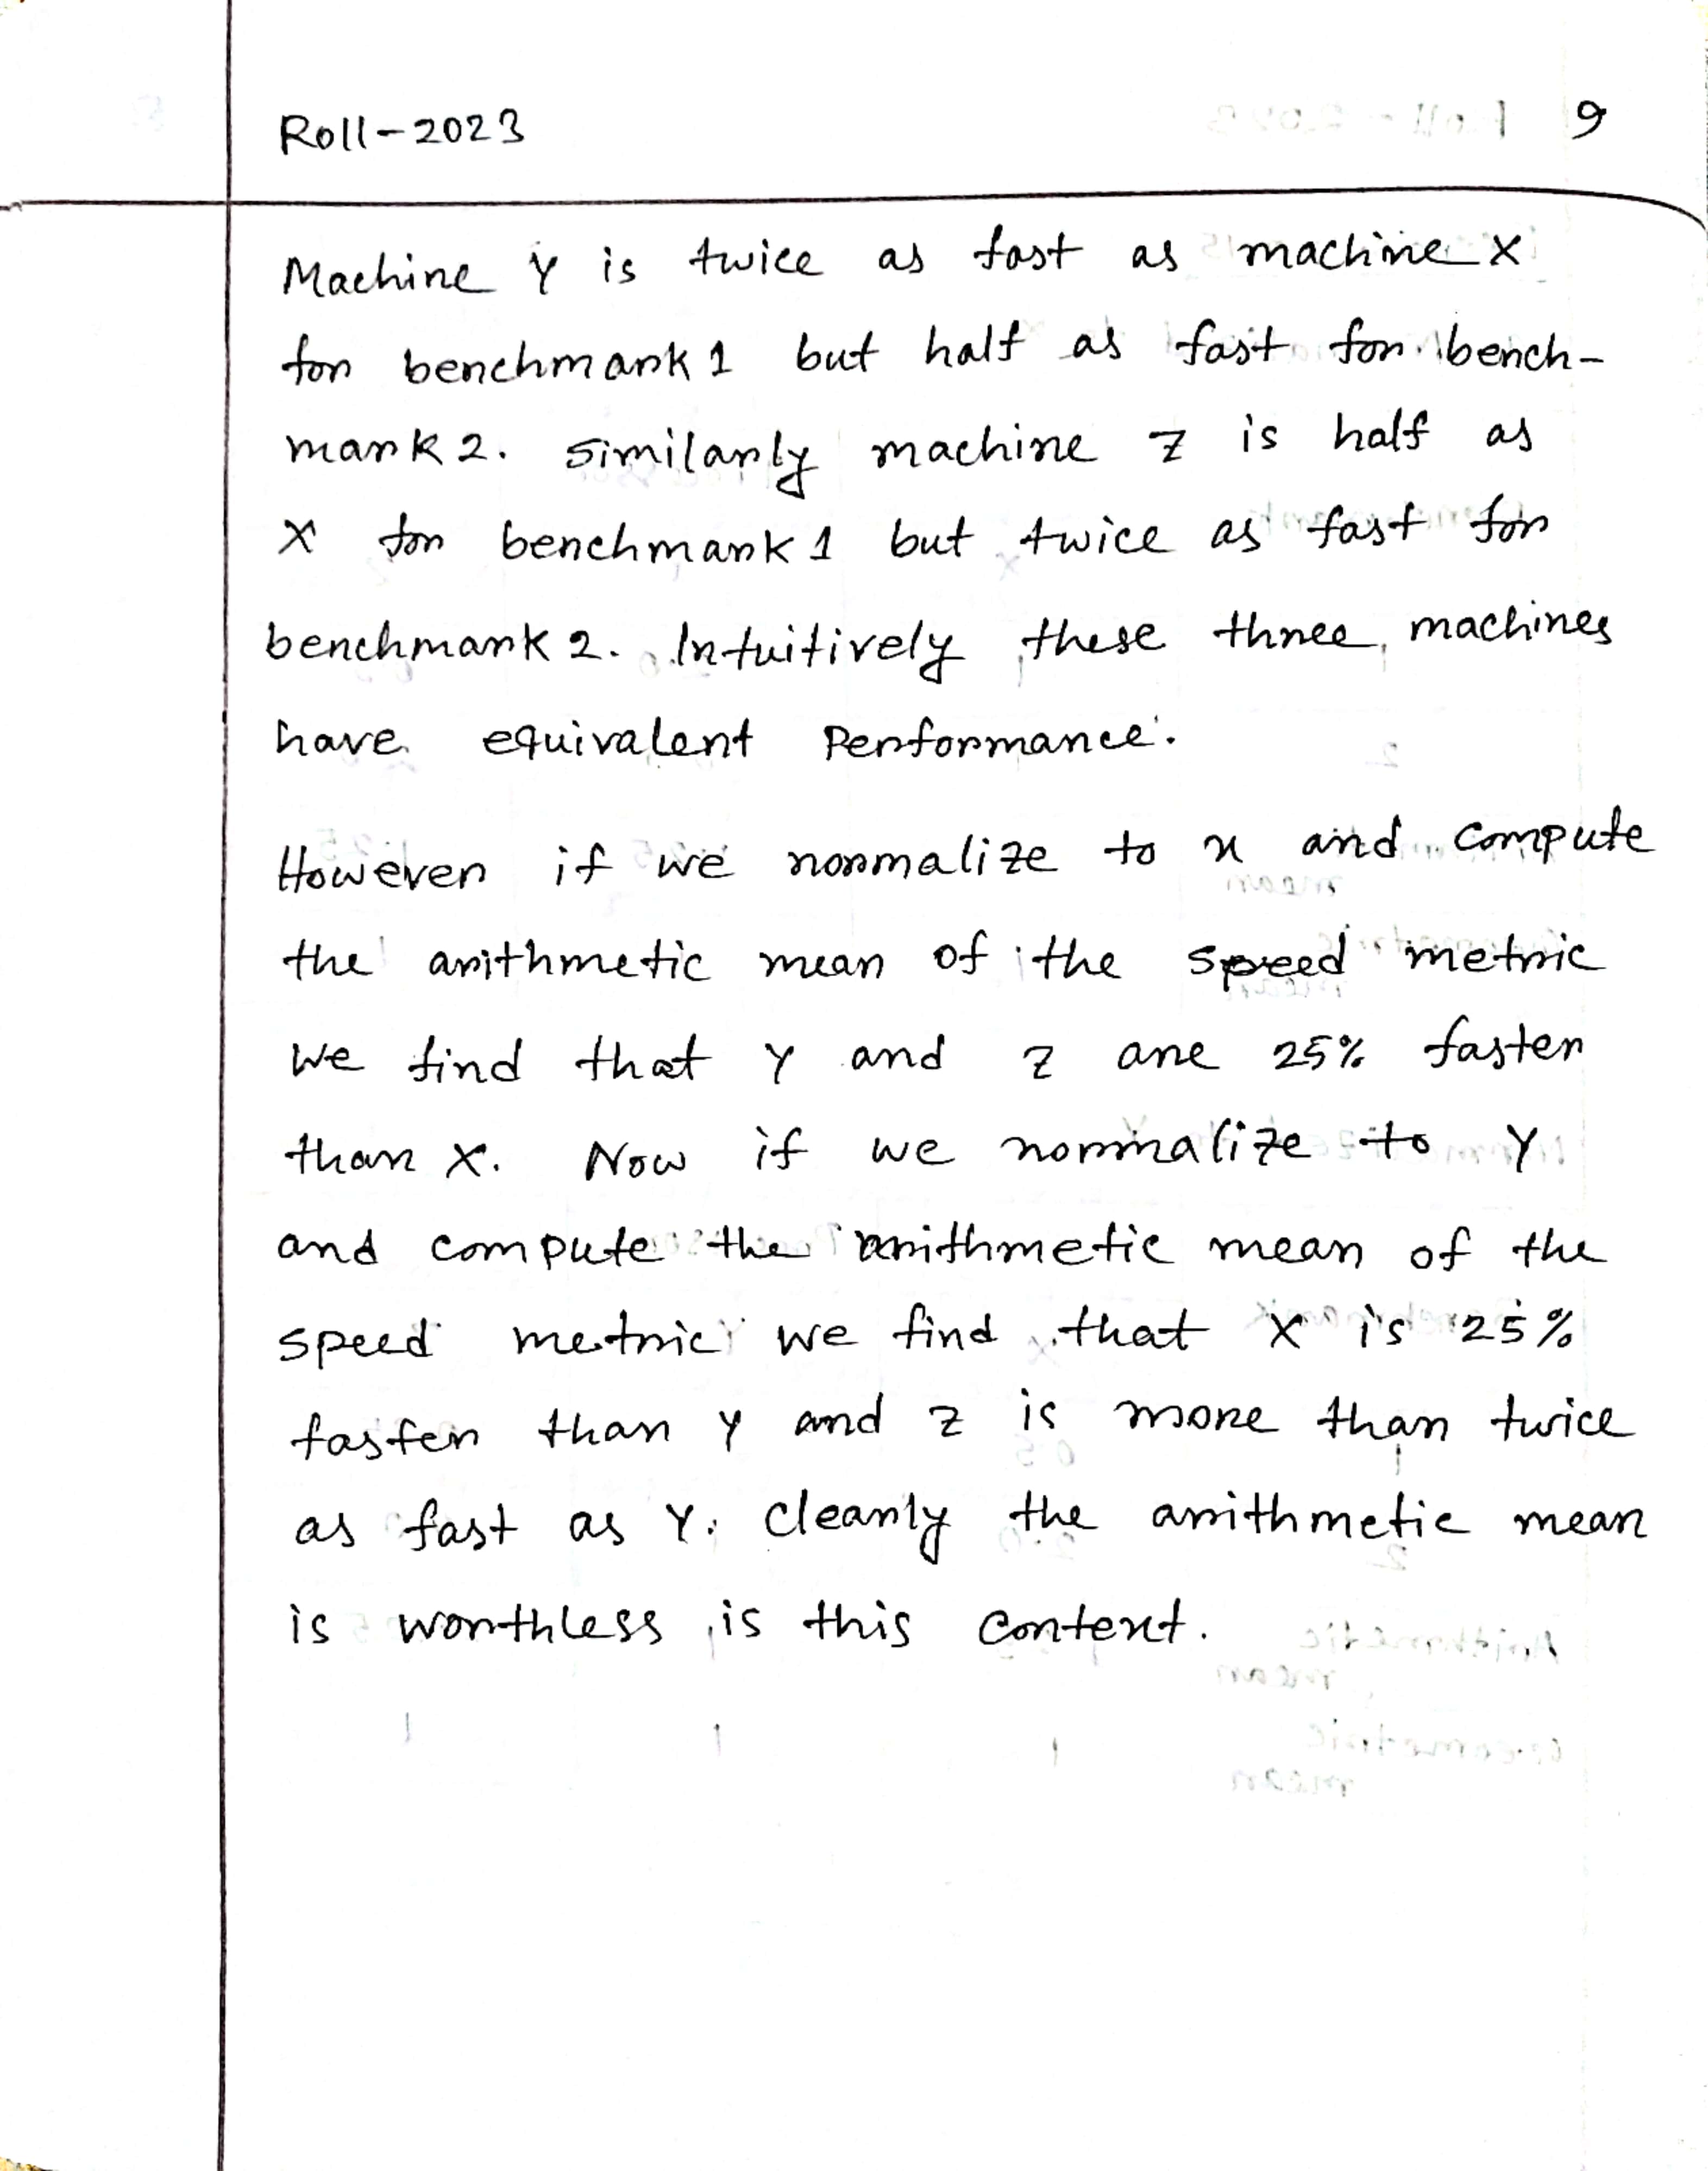 Roll-2023
9
Machine Y is twice as fast as machine X
for benchmark 1 but half as fast for bench-
mark 2. Similarly machine Z is half as
X for benchmark 1 but twice as fast for
benchmark 2. Intuitively these three machines
have equivalent Performance.
However if we normalize to x and compute
the arithmetic mean of the speed metric
We find that Y and Z are 25% faster
than X. Now if we normalize to Y
and compute the arithmetic mean of the
speed metric we find that X is 25%
faster than Y and Z is more than twice
as fast as Y. Clearly the arithmetic mean
is worthless is this context.